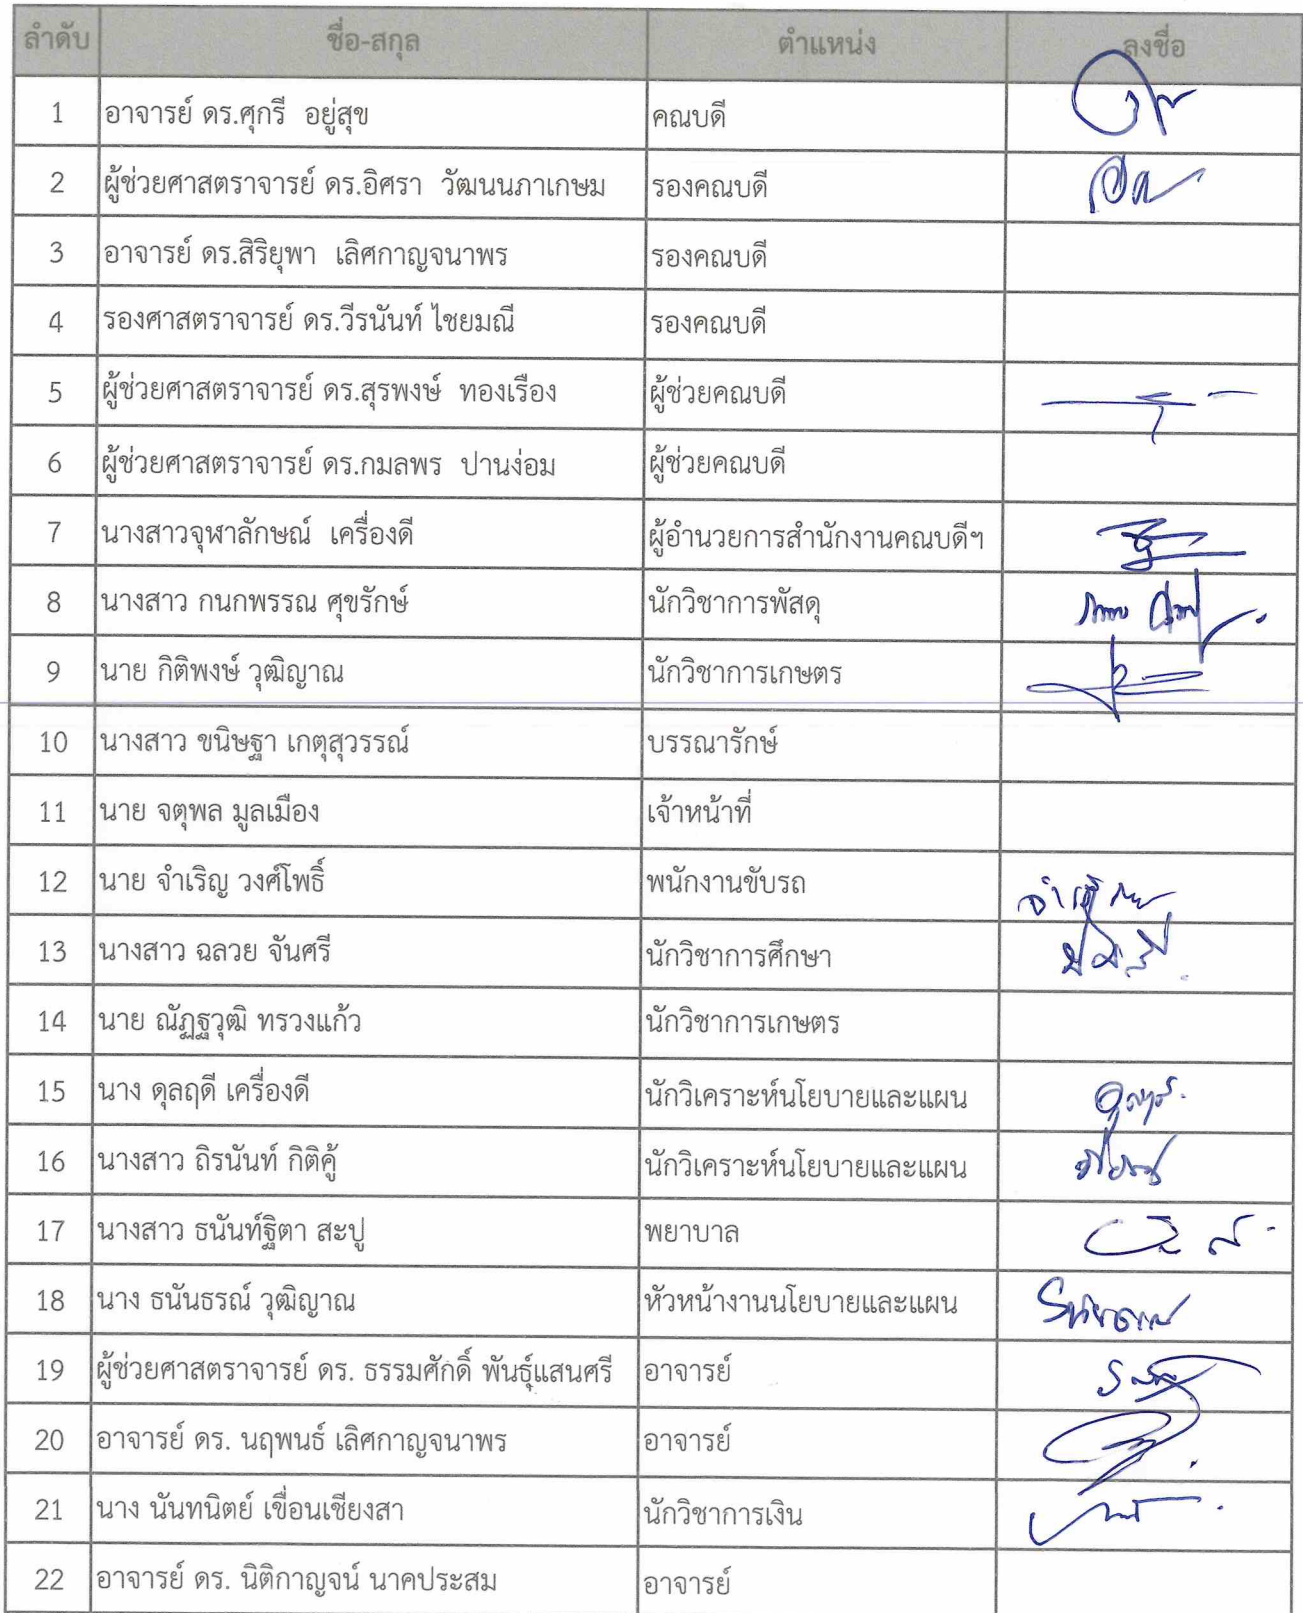 ลำดับ ชื่อ-สกุล ตำแหน่ง ลงชื่อ
1 อาจารย์ ดร.ศุกรี อยู่สุข คณบดี
2 ผู้ช่วยศาสตราจารย์ ดร.อิศรา วัฒนนภาเกษม รองคณบดี
3 อาจารย์ ดร.สิริยุพา เลิศกาญจนาพร รองคณบดี
4 รองศาสตราจารย์ ดร.วีรนันท์ ไชยมณี รองคณบดี
5 ผู้ช่วยศาสตราจารย์ ดร.สุรพงษ์ ทองเรือง ผู้ช่วยคณบดี
6 ผู้ช่วยศาสตราจารย์ ดร.กมลพร ปานง่อม ผู้ช่วยคณบดี
7 นางสาวจุฬาลักษณ์ เครื่องดี ผู้อำนวยการสำนักงานคณบดีฯ
8 นางสาว กนกพรรณ ศุขรักษ์ นักวิชาการพัสดุ
9 นาย กิติพงษ์ วุฒิญาณ นักวิชาการเกษตร
10 นางสาว ขนิษฐา เกตุสุวรรณ์ บรรณารักษ์
11 นาย จตุพล มูลเมือง เจ้าหน้าที่
12 นาย จำเริญ วงศ์โพธิ์ พนักงานขับรถ
13 นางสาว ฉลวย จันศรี นักวิชาการศึกษา
14 นาย ณัฏฐวุฒิ ทรวงแก้ว นักวิชาการเกษตร
15 นาง ดุลฤดี เครื่องดี นักวิเคราะห์นโยบายและแผน
16 นางสาว ถิรนันท์ กิติคู้ นักวิเคราะห์นโยบายและแผน
17 นางสาว ธนันท์ฐิตา สะปู พยาบาล
18 นาง ธนันธรณ์ วุฒิญาณ หัวหน้างานนโยบายและแผน
19 ผู้ช่วยศาสตราจารย์ ดร. ธรรมศักดิ์ พันธุ์แสนศรี อาจารย์
20 อาจารย์ ดร. นฤพนธ์ เลิศกาญจนาพร อาจารย์
21 นาง นันทนิตย์ เขื่อนเชียงสา นักวิชาการเงิน
22 อาจารย์ ดร. นิติกาญจน์ นาคประสม อาจารย์